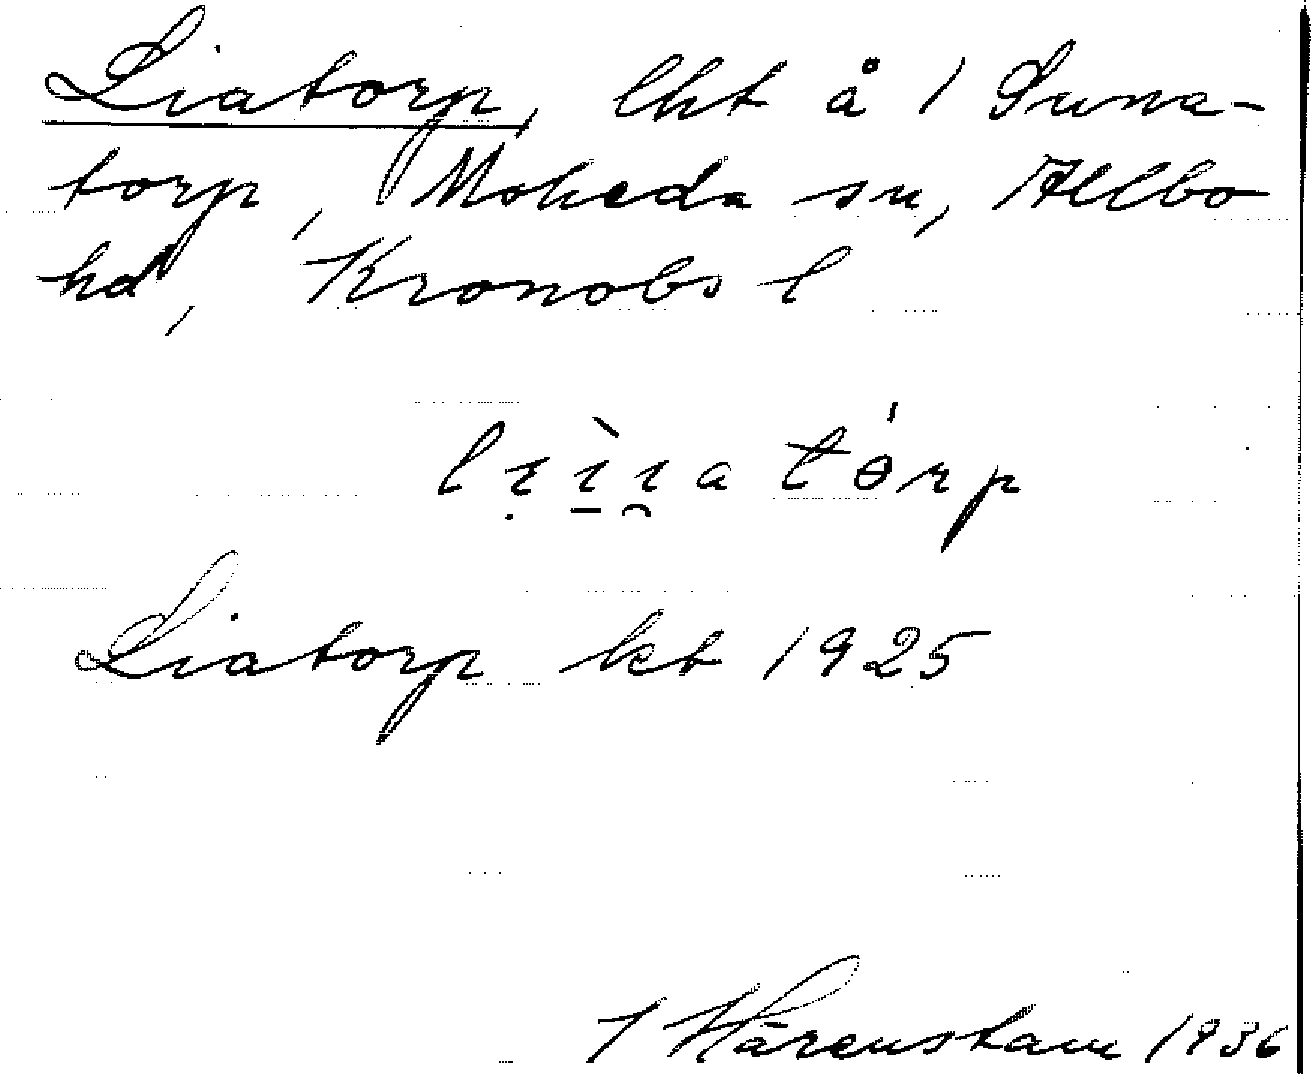 Liatorp, lht å 1 Suna-
torp, Moheda sn, Allbo
hd, Kronobs l
Liatorp kb 1925
J Hårenstam 1936